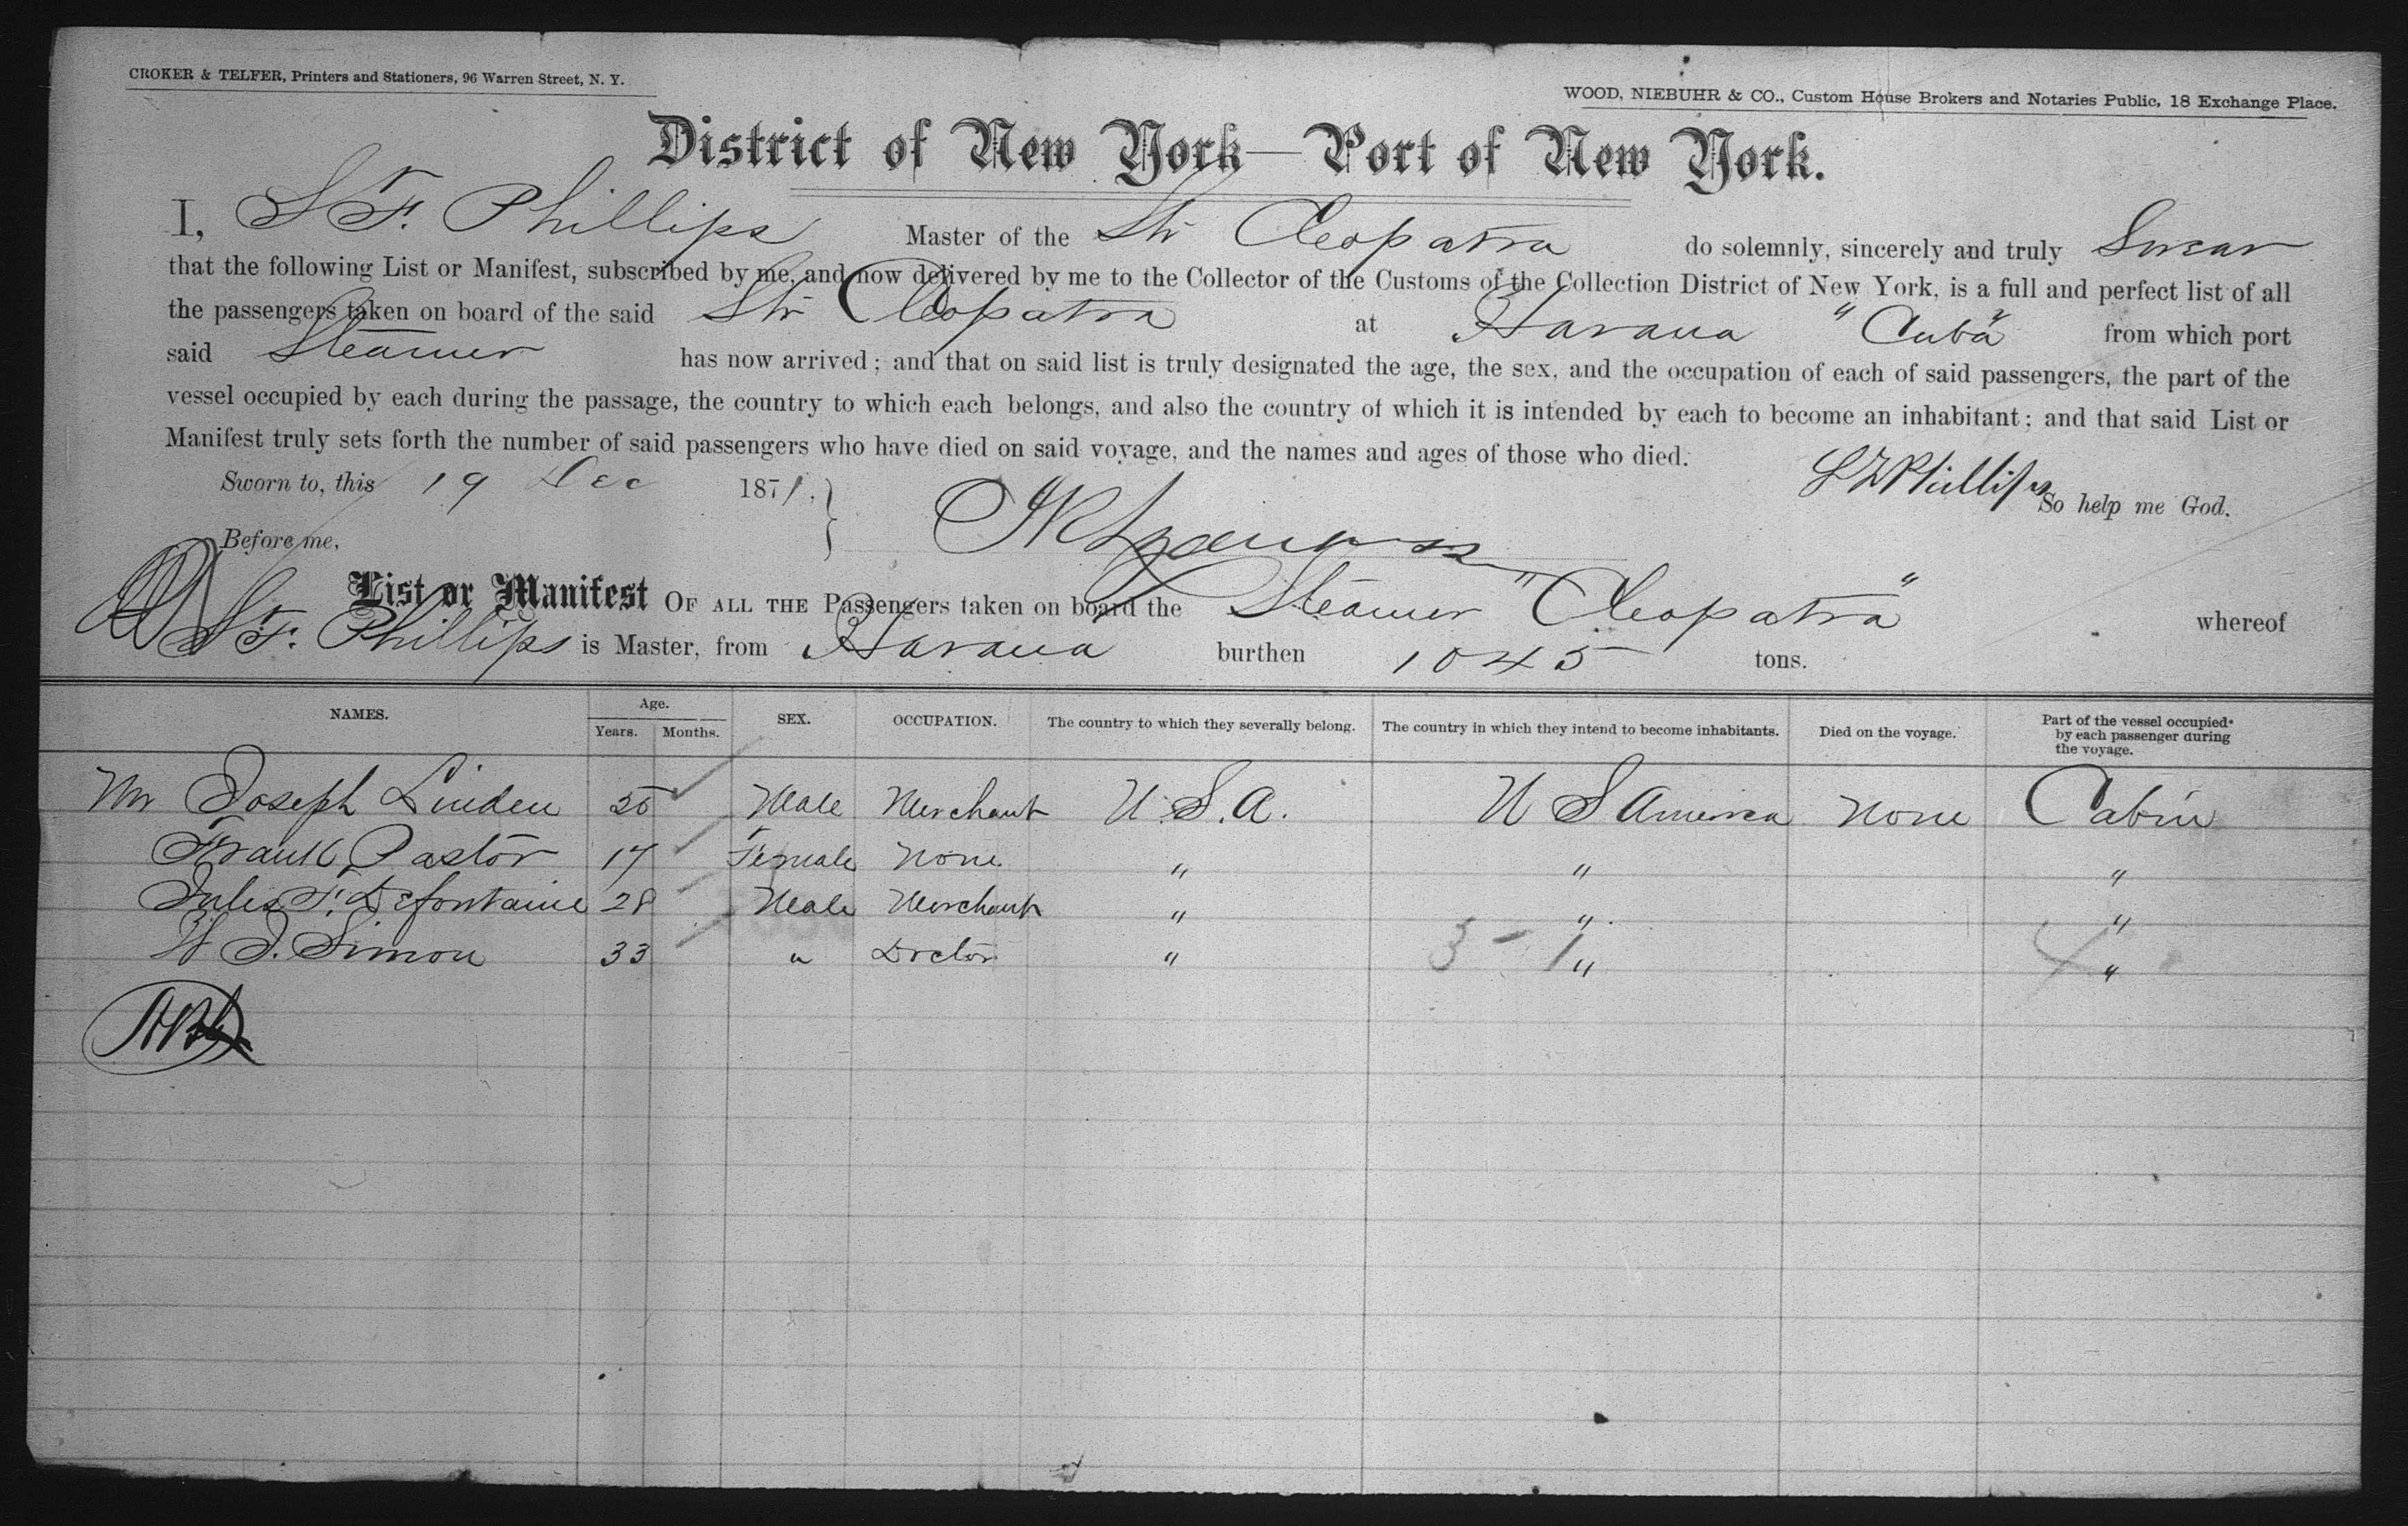 CROKER & TELFER, Printers and Stationers, 96 Warren Street, N. Y.
WOOD, NIEBUHR & CO., Custom House Brokers and Notaries Public, 18 Exchange Place.
District of New York—Port of New York.
I, S F. Phillips Master of the Str Cleopatra do solemnly, sincerely and truly Swear
that the following List or Manifest, subscribed by me, and now delivered by me to the Collector of the Customs of the Collection District of New York, is a full and perfect list of all
the passengers taken on board of the said Str Cleopatra at Havana "Cuba" from which port
said Steamer has now arrived; and that on said list is truly designated the age, the sex, and the occupation of each of said passengers, the part of the
vessel occupied by each during the passage, the country to which each belongs, and also the country of which it is intended by each to become an inhabitant; and that said List or
Manifest truly sets forth the number of said passengers who have died on said voyage, and the names and ages of those who died.
Sworn to, this 19 Dec 1871. S F Phillips So help me God.
Before me,
List or Manifest OF ALL THE Passengers taken on board the Steamer "Cleopatra" whereof
S F. Phillips is Master, from Havana burthen 1045 tons.
NAMES. Age. Years. Months. SEX. OCCUPATION. The country to which they severally belong. The country in which they intend to become inhabitants. Died on the voyage. Part of the vessel occupied by each passenger during the voyage.
Mr Joseph Linden 25 Male Merchant U. S. A. U S America None Cabin
Frank Pastor 17 Female None " " "
Jules F. Defontaine 28 Male Merchant " " "
W J. Simon 33 " Doctor " " "
3 - 1 4